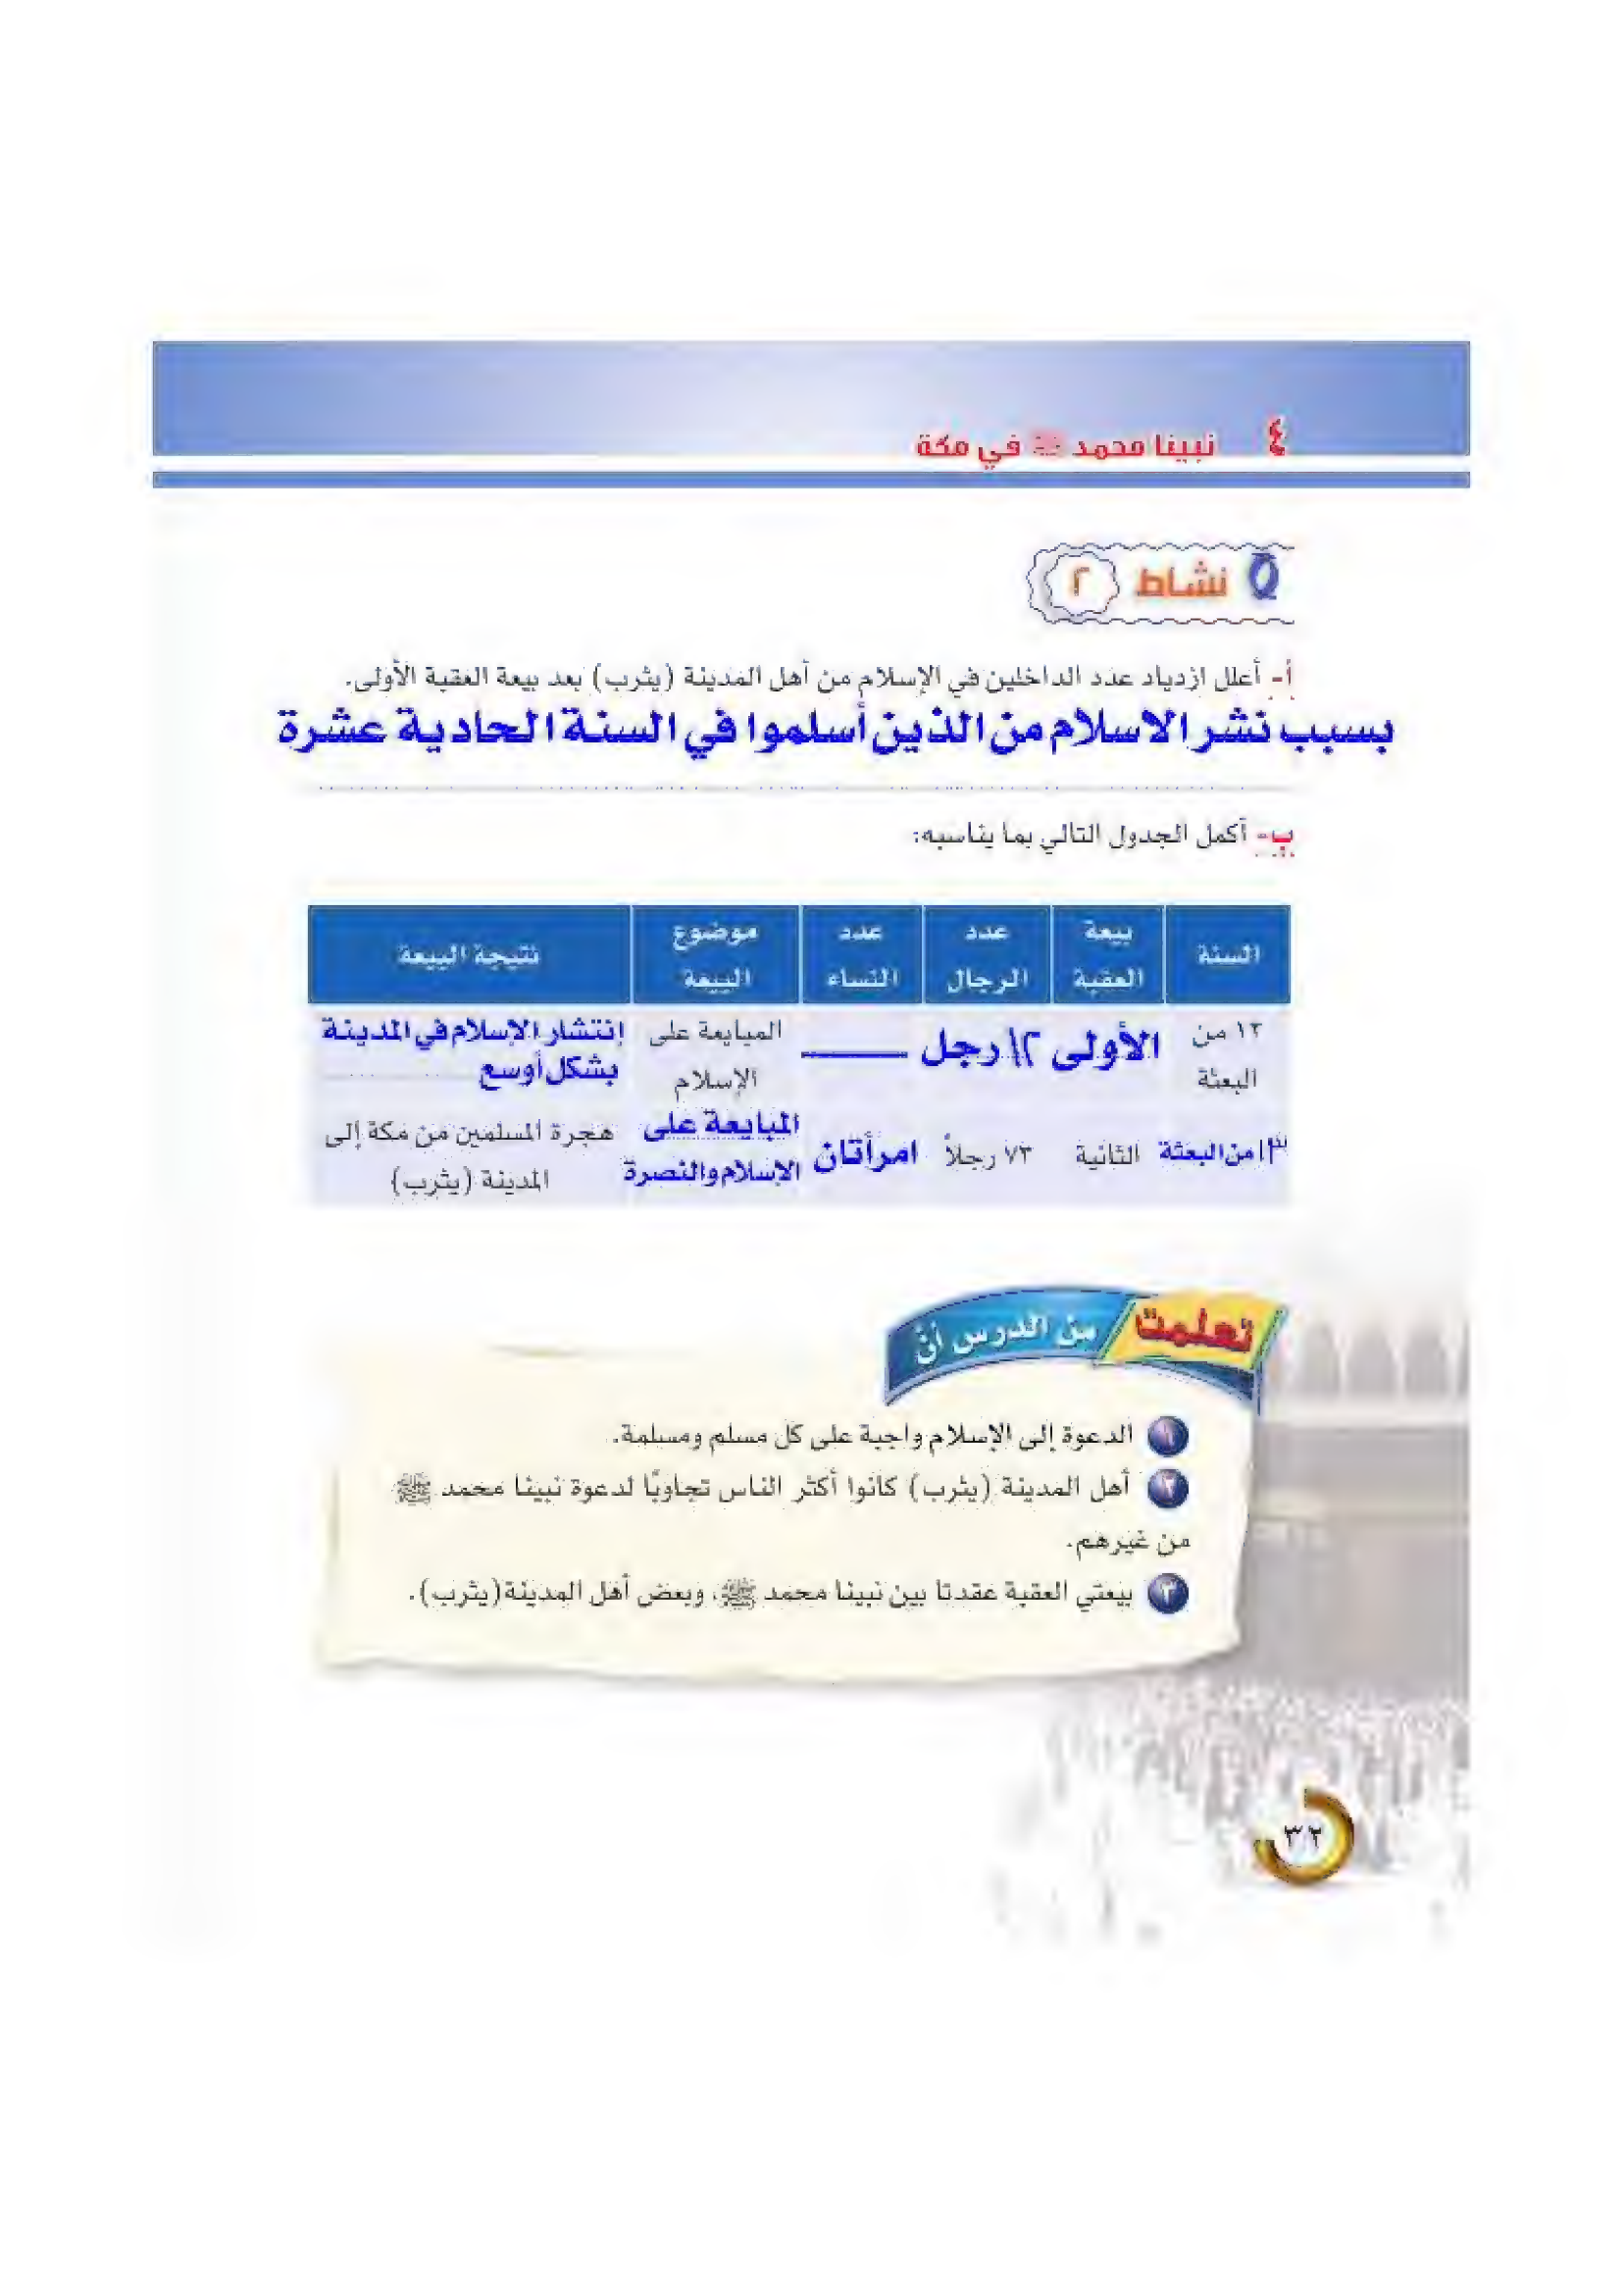 ٤ نبينا محمد ﷺ في مكة
نشاط ٢
أ- أعلل ازدياد عدد الداخلين في الإسلام من أهل المدينة (يثرب) بعد بيعة العقبة الأولى.
بسبب نشر الاسلام من الذين أسلموا في السنة الحادية عشرة
ب- أكمل الجدول التالي بما يناسبه:
السنة بيعة العقبة عدد الرجال عدد النساء موضوع البيعة نتيجة البيعة
١٢ من البعثة الأولى ١٢ رجل ـــــــ المبايعة على الإسلام إنتشار الإسلام في المدينة بشكل أوسع
١٣ من البعثة الثانية ٧٣ رجلاً امرأتان المبايعة على الإسلام والنصرة هجرة المسلمين من مكة إلى المدينة (يثرب)
تعلمت من الدرس أن
١ الدعوة إلى الإسلام واجبة على كل مسلم ومسلمة.
٢ أهل المدينة (يثرب) كانوا أكثر الناس تجاوبًا لدعوة نبينا محمد ﷺ
من غيرهم.
٣ بيعتي العقبة عقدتا بين نبينا محمد ﷺ، وبعض أهل المدينة(يثرب).
٣٢